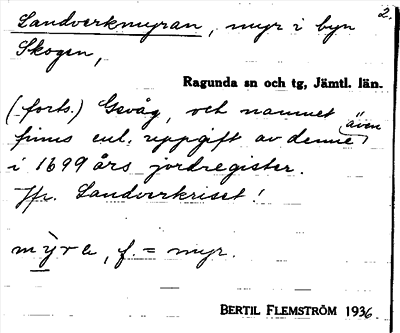 2.
Landverkmyran, myr i byn
Skogen,
Ragunda sn och tg, Jämtl. län.
(forts.) Gevåg, och namnet även
finns enl. uppgift av denne
i 1699 års jordregister.
Jfr. Landverkriset!
mỳra, f. = myr.
BERTIL FLEMSTRÖM 1936.